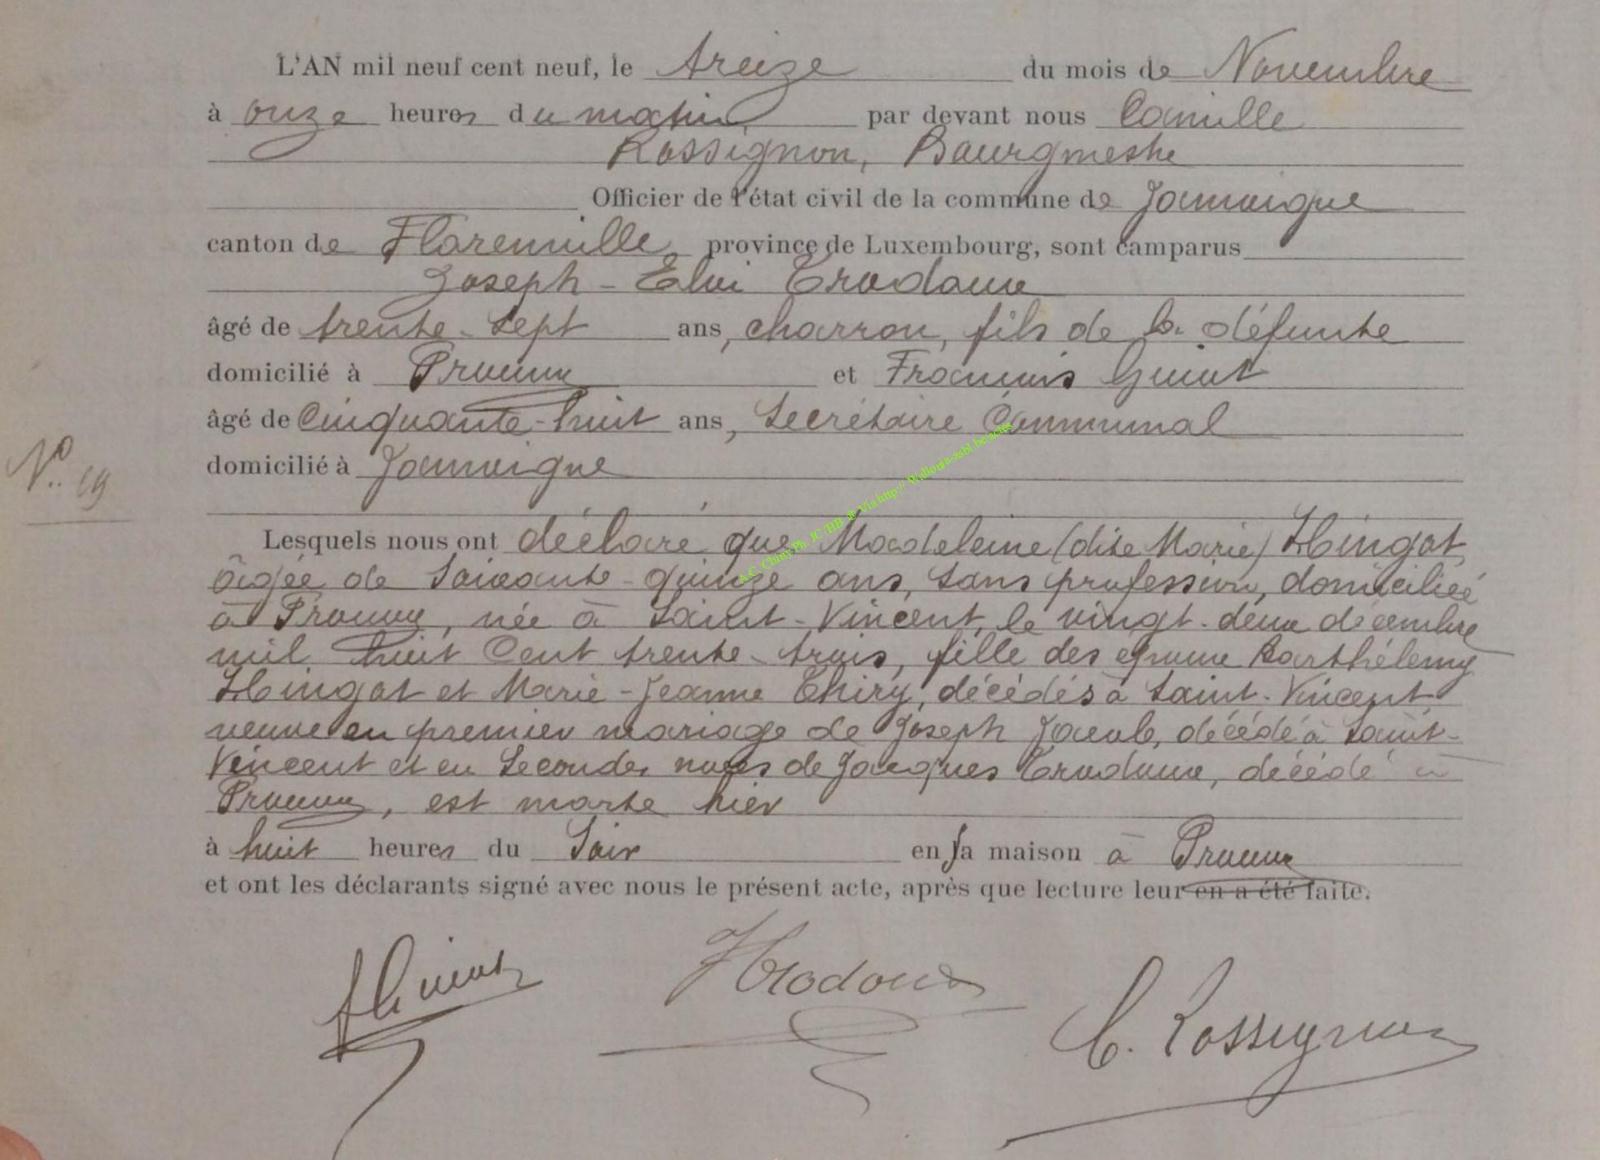 L'AN mil neuf cent neuf, le treize du mois de Novembre
à onze heures du matin par devant nous Camille
Rossignon, Bourgmestre
Officier de l'état civil de la commune de Jamoigne
canton de Florenville, province de Luxembourg, sont camparus
Joseph - Eloi Trodoux
âgé de trente-sept ans, charron, fils de la défunte
domicilié à Prouvy et François Guiot
âgé de Cinquante-huit ans, Secrétaire Communal
domicilié à Jamoigne
N° 19
Lesquels nous ont déclaré que Madeleine (dite Marie) Hingot
âgée de Soixante-quinze ans, sans profession, domiciliée
à Prouvy, née à Saint-Vincent, le vingt-deux décembre
mil huit Cent trente-trois, fille des époux Barthélemy
Hingot et Marie-Jeanne Thiry, décédés à Saint-Vincent,
veuve en premier mariage de Joseph Jacob, décédé à Saint-
Vincent et en Secondes noces de Jacques Trodoux, décédé à
Prouvy, est morte hier
à huit heures du Soir en sa maison à Prouvy
et ont les déclarants signé avec nous le présent acte, après que lecture leur en a été faite.
F Guiot
J Trodoux
C. Rossignon